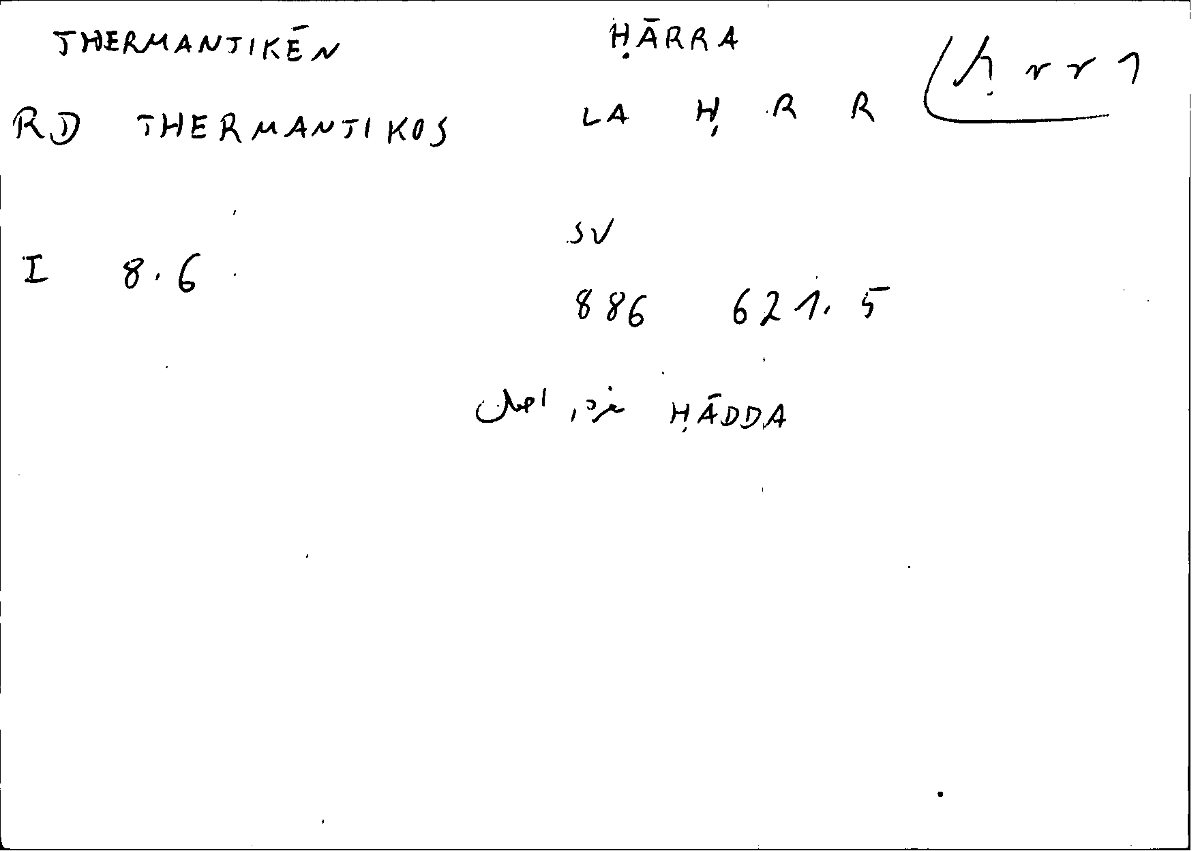 THERMANTIKĒN ḤĀRRA
RD THERMANTIKOS LA Ḥ R R ḥrr1
I 8.6
SV
886 621.5
ḤĀDDA اصل